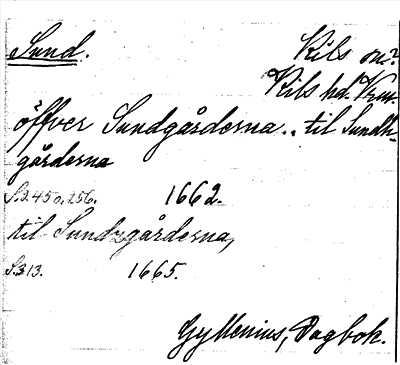 Sund.
Kils sn?
Kils hd. Vrm.
öffver Sundgårderna .. til Sundh-
gårderna
S. 245o, 256. 1662.
til Sundzgårderna,
S. 313. 1665.
Gyllenius, Dagbok.